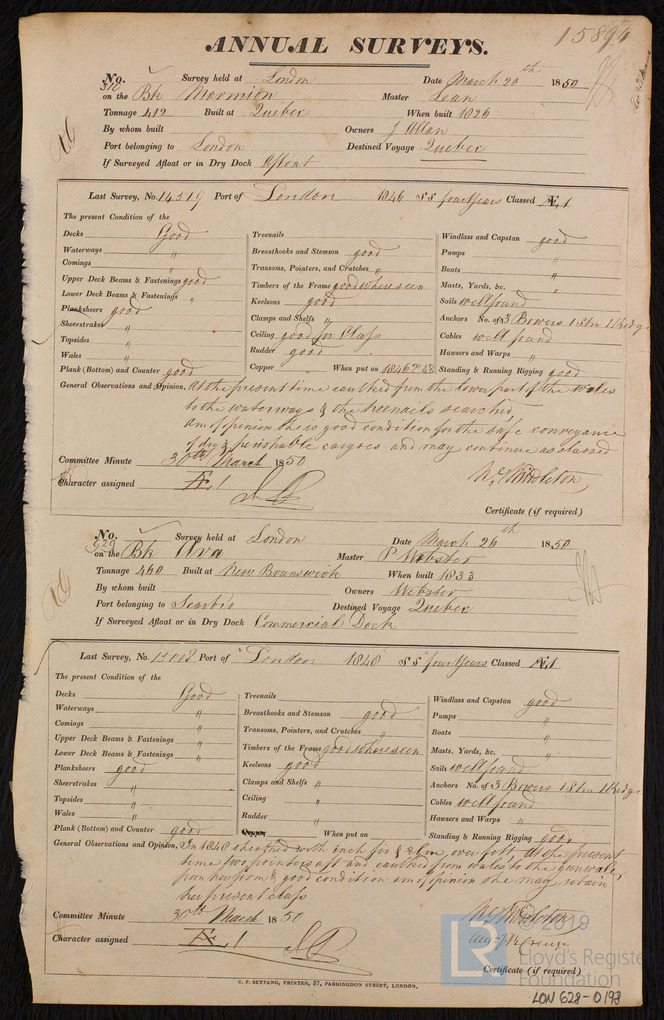 15894
ANNUAL SURVEYS.
No. 310 Survey held at London Date March 20th 1850
on the Bk Marmion Master Lean
Tonnage 412 Built at Quebec When built 1826
By whom built Owners J Allan
Port belonging to London Destined Voyage Quebec
If Surveyed Afloat or in Dry Dock Afloat
Last Survey, No. 14519 Port of London 1846 SS four Years Classed Æ 1
The present Condition of the
Decks Good
Waterways "
Comings "
Upper Deck Beams & Fastenings good
Lower Deck Beams & Fastenings "
Planksheers good
Sheerstrakes "
Topsides "
Wales "
Plank (Bottom) and Counter good
Treenails
Breasthooks and Stemson good
Transoms, Pointers, and Crutches "
Timbers of the Frame good where seen
Keelsons good
Clamps and Shelfs "
Ceiling good for Class
Rudder good
Copper When put on 1846 48
Windlass and Capstan good
Pumps "
Boats "
Masts, Yards, &c. "
Sails well found
Anchors No. of 3 Bowers 1 Strm 1 Kedge
Cables well found
Hawsers and Warps "
Standing & Running Rigging good
General Observations and Opinion, At the present time caulked from the lower part of the wales
to the waterways & the treenails searched
am of opinion she is good condition for the safe conveyance
of dry & perishable cargoes and may continue as classed
Committee Minute 30th March 1850
Character assigned Æ 1
Wm Middleton
Certificate (if required)
No. 929 Survey held at London Date March 26th 1850
on the Bk Ava Master P Webster
Tonnage 460 Built at New Brunswick When built 1833
By whom built Owners Webster
Port belonging to Scarbro Destined Voyage Quebec
If Surveyed Afloat or in Dry Dock Commercial Dock
Last Survey, No. 15008 Port of London 1848 SS four Years Classed Æ 1
The present Condition of the
Decks Good
Waterways "
Comings "
Upper Deck Beams & Fastenings "
Lower Deck Beams & Fastenings "
Planksheers good
Sheerstrakes "
Topsides "
Wales "
Plank (Bottom) and Counter good
Treenails
Breasthooks and Stemson good
Transoms, Pointers, and Crutches "
Timbers of the Frame good where seen
Keelsons good
Clamps and Shelfs "
Ceiling "
Rudder "
When put on
Windlass and Capstan good
Pumps "
Boats "
Masts, Yards, &c. "
Sails well found
Anchors No. of 3 Bowers 1 Strm 1 Kedge
Cables well found
Hawsers and Warps "
Standing & Running Rigging good
General Observations and Opinion, In 1848 sheathed with inch fir & over felt, At the present
time two pointers aft and caulked from wales to the gunwale,
good condition am of opinion she may retain
her present class
Committee Minute 30th March 1850
Character assigned Æ 1
Wm Middleton
Certificate (if required)
G. F. SEYFANG, PRINTER, 57, FARRINGDON STREET, LONDON.
© 2019
LR Lloyd's Register
Foundation
LON 628-0198